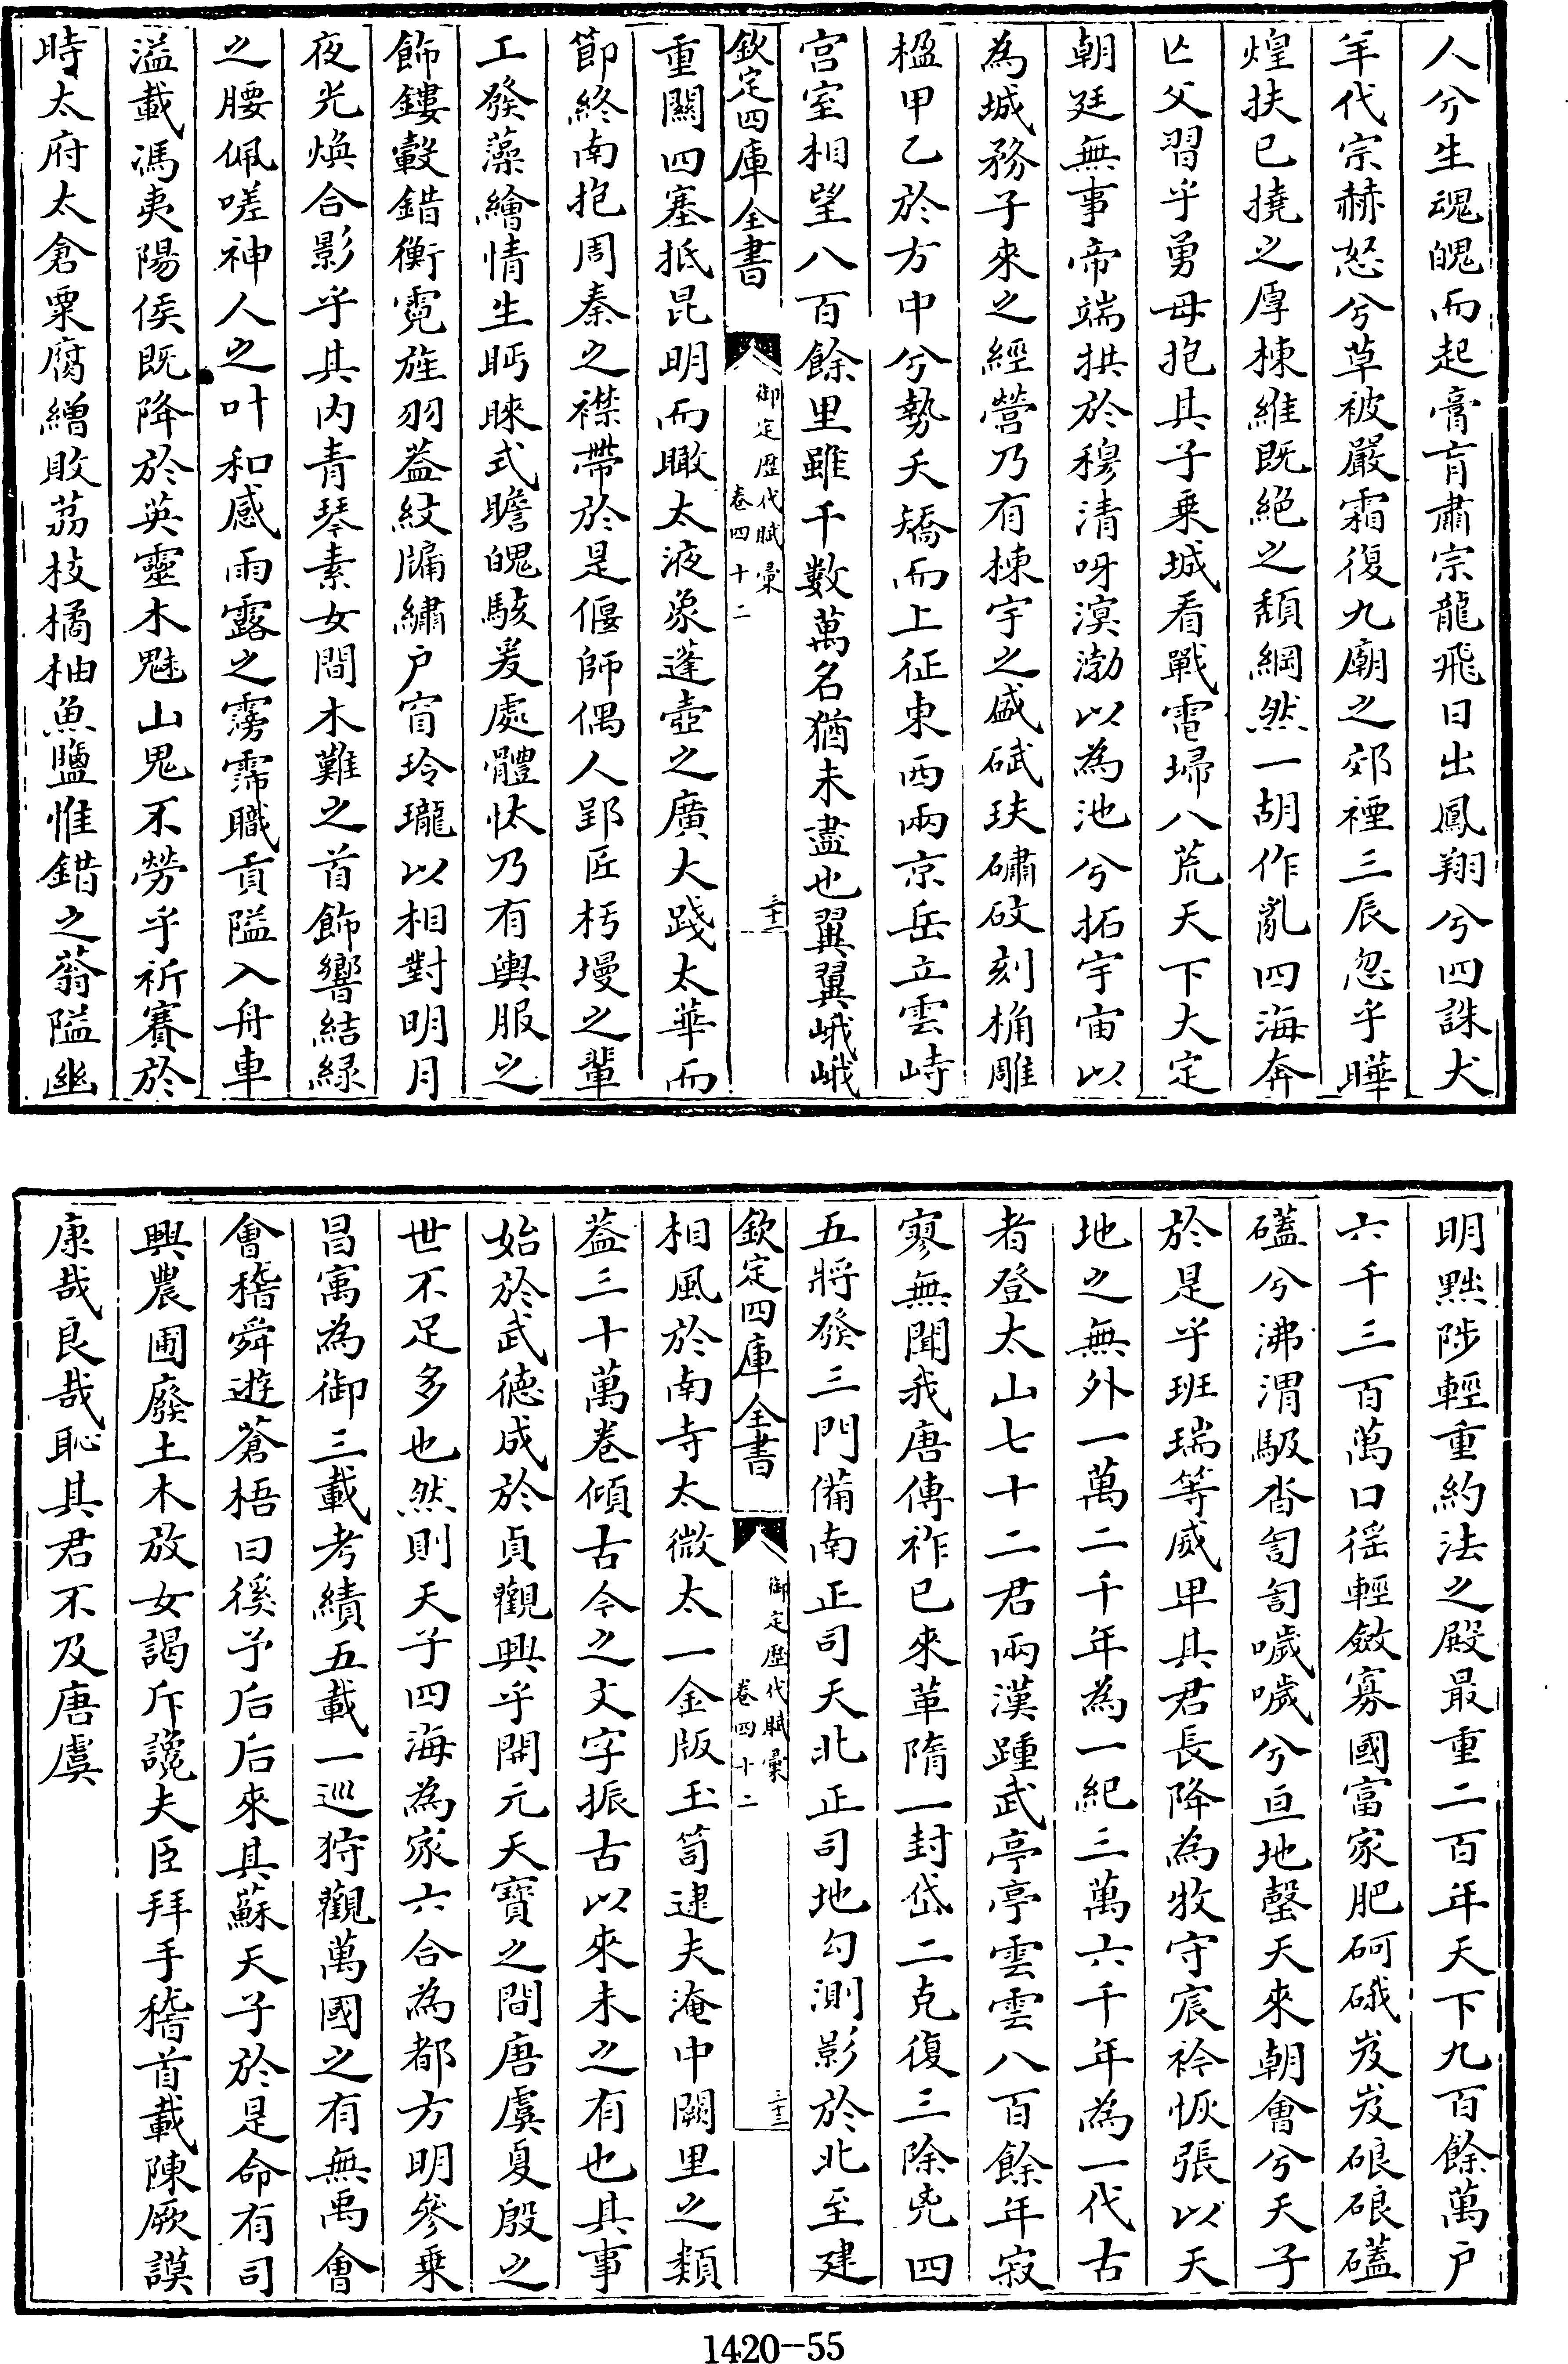 人兮生魂魄而起膏肓肅宗龍飛日出鳳翔兮四誅犬
羊代宗赫怒兮草被嚴霜復九廟之郊禋三辰忽乎曄
煌扶已撓之厚棟維既絕之頽綱然一胡作亂四海奔
亡父習乎勇母抱其子乗城看戰電埽八荒天下大定
朝廷無事帝端拱於穆清呀溟渤以為池兮拓宇宙以
為城務子來之經營乃有棟宇之盛碔玞磭砇刻桷雕
楹甲乙於方中兮勢夭矯而上征東西兩京岳立雲峙
宫室相望八百餘里雖千數萬名猶未盡也翼翼峨峨
欽定四庫全書
御定歴代賦彙
卷四十二
三十二
重闗四塞抵昆明而瞰太液象蓬壺之廣大踐太華而
節終南抱周秦之襟帶於是偃師偶人郢匠杇墁之輩
工發藻繪情生眄睞式瞻魄駭爰處體忲乃有輿服之
飾鏤轂錯衡霓旌羽葢紋牖繡户窅玲瓏以相對明月
夜光煥合影乎其内青琴素女間木難之首飾響結緑
之腰佩嗟神人之叶和感雨露之霶霈職貢隘入舟車
溢載馮夷陽侯既降於英靈木魅山鬼不勞乎祈賽於
時太府太倉粟腐繒敗荔枝橘柚魚鹽惟錯之蓊隘幽
明黜陟輕重約法之殿最重二百年天下九百餘萬户
六千三百萬口徭輕斂寡國富家肥砢硪岌岌硠硠礚
礚兮沸渭馺沓訇訇噦噦兮亘地罄天來朝會兮天子
於是乎班瑞等威甲其君長降為牧守扆衿恢張以天
地之無外一萬二千年為一紀三萬六千年為一代古
者登太山七十二君兩漢踵武亭亭雲雲八百餘年寂
寥無聞我唐傳祚已來革隋一封岱二克復三除兇四
五將發三門備南正司天北正司地勾測影於北至建
欽定四庫全書
御定歴代賦彙
卷四十二
三十三
相風於南寺太微太一金版玉笥逮夫淹中闕里之類
葢三十萬卷傾古今之文字振古以來未之有也其事
始於武德成於貞觀興乎開元天寶之間唐虞夏殷之
世不足多也然則天子四海為家六合為都方明參乗
昌寓為御三載考績五載一巡狩觀萬國之有無禹會
會稽舜遊蒼梧曰徯予后后來其蘇天子於是命有司
興農圃廢土木放女謁斥讒夫臣拜手稽首載陳厥謨
康哉良哉恥其君不及唐虞
1420-55